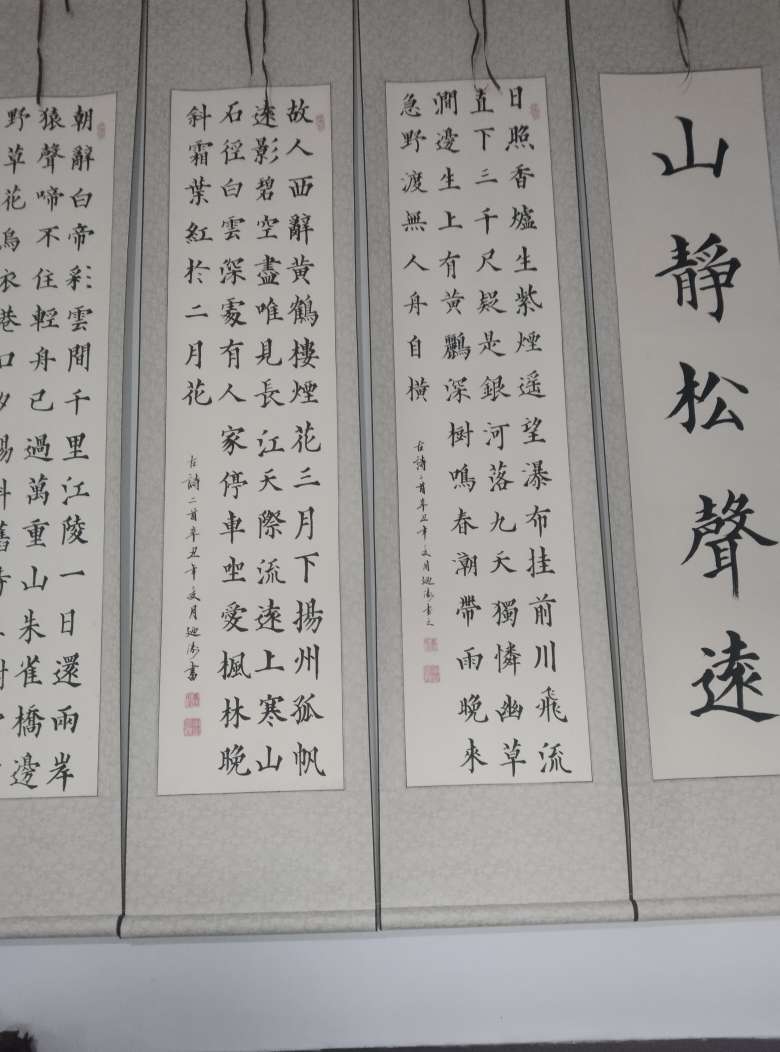 山靜松聲遠
日照香爐生紫煙遥望瀑布挂前川飛流
直下三千尺疑是銀河落九天獨憐幽草
澗邊生上有黃鸝深樹鳴春潮帶雨晚來
急野渡無人舟自橫
古詩二首辛丑年月書之
故人西辭黃鶴樓煙花三月下揚州孤帆
遠影碧空盡唯見長江天際流遠上寒山
石徑白雲深處有人家停車坐愛楓林晚
斜霜葉紅於二月花
古詩二首辛丑年月書
朝辭白帝彩雲間千里江陵一日還兩岸
猿聲啼不住輕舟已過萬重山朱雀橋邊
野草花烏衣巷口夕陽斜舊時